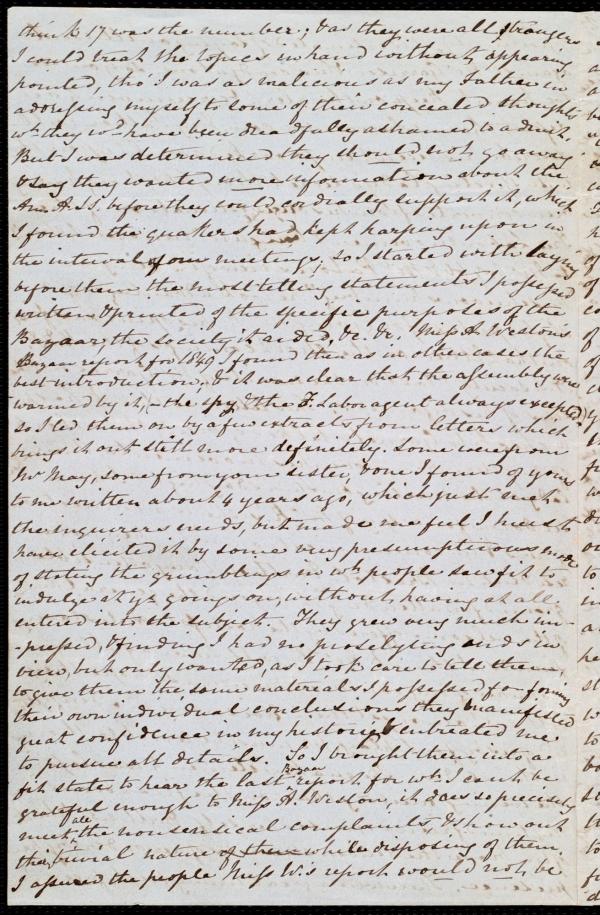 think 17 was the number; & as they were all strangers
I could treat the topics in hand without appearing
pointed, tho' I was as malicious as my Father in
addressing myself to some of their concealed thoughts
wh. they wd. have been dreadfully ashamed to admit.
But I was determined they should not go away
& say they wanted more information about the
Am. A.S.S. before they could cordially support it, which
I found the quakers had kept harping upon in
the interval of our meetings, so I started with laying
before them the most telling statements I possessed
written & printed of the specific purposes of the
Bazaar, the society it aided, &c. &c. Miss A. Weston's
Bazaar report for 1849 I found then as in other cases the
best introduction, & it was clear that the assembly were
warmed by it, - the spy & the F. Labor agent always excepted,
so I led them on by a few extracts from letters which
brings it out still more definitely. Some were from
Mr May, some from your sister, & one I found of yours
to me written about 4 years ago, which just met
the inquirers needs, but made me feel I must
have elicited it by some very presumptuous mode
of stating the grumblings in wh. people saw fit to
indulge at yr. goings on, without having at all
entered into the subject. They grew very much im-
-pressed, & finding I had no proselyting ends in
view, but only wanted, as I took care to tell them,
to give them the same materials I possessed for forming
their own individual conclusions they manifested
great confidence in my histories & entreated me
to pursue all details. So I brought them into a
fit state to hear the last Bazaar report for wh. I can't be
grateful enough to Miss A. Weston, it does so precisely
meet all the nonsensical complaints, & show out
their trivial nature while disposing of them.
I assured the people Miss W's report would not be